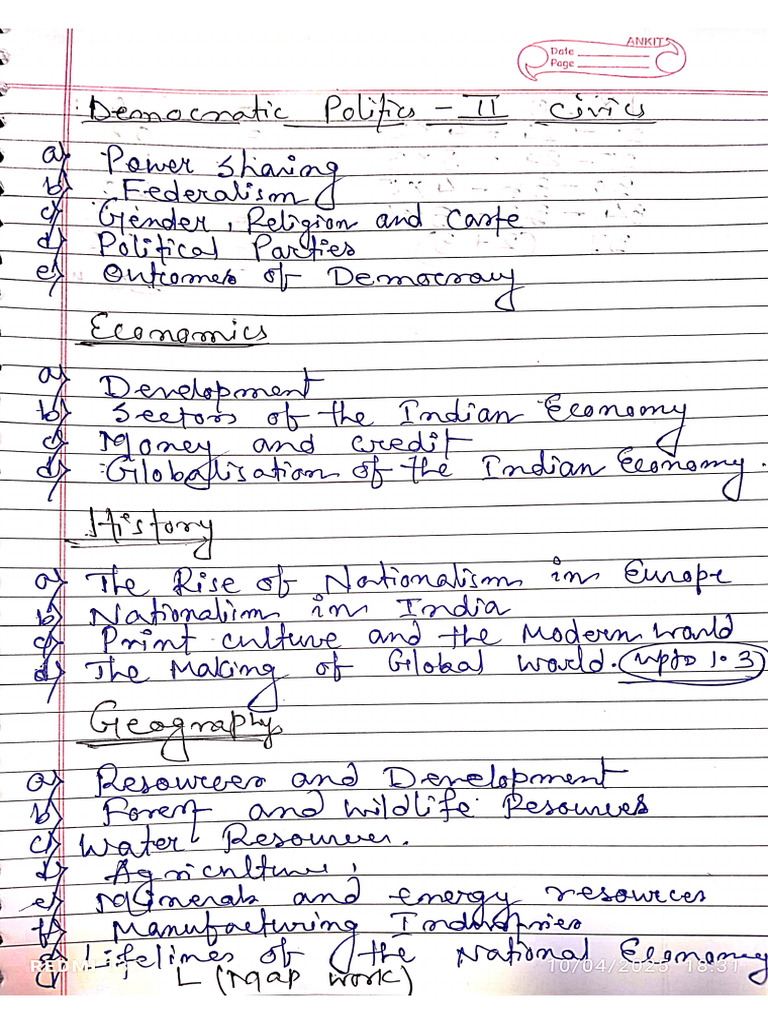 ANKIT
Date
Page
Democratic Politics - II Civics
a) Power Sharing
b) Federalism
c) Gender, Religion and Caste
d) Political Parties
e) Outcomes of Democracy
Economics
a) Development
b) Sectors of the Indian Economy
c) Money and credit
d) Globalisation of the Indian Economy.
History
a) The Rise of Nationalism in Europe
b) Nationalism in India
c) Print culture and the Modern world
d) The Making of Global world. upto 1.3
Geography
a) Resources and Development
b) Forest and wildlife Resources
c) Water Resources.
d) Agriculture,
e) Minerals and energy resources
f) Manufacturing Industries
g) Lifelines of the National Economy
(Map work)
REDMI
10/04/2025 18:31